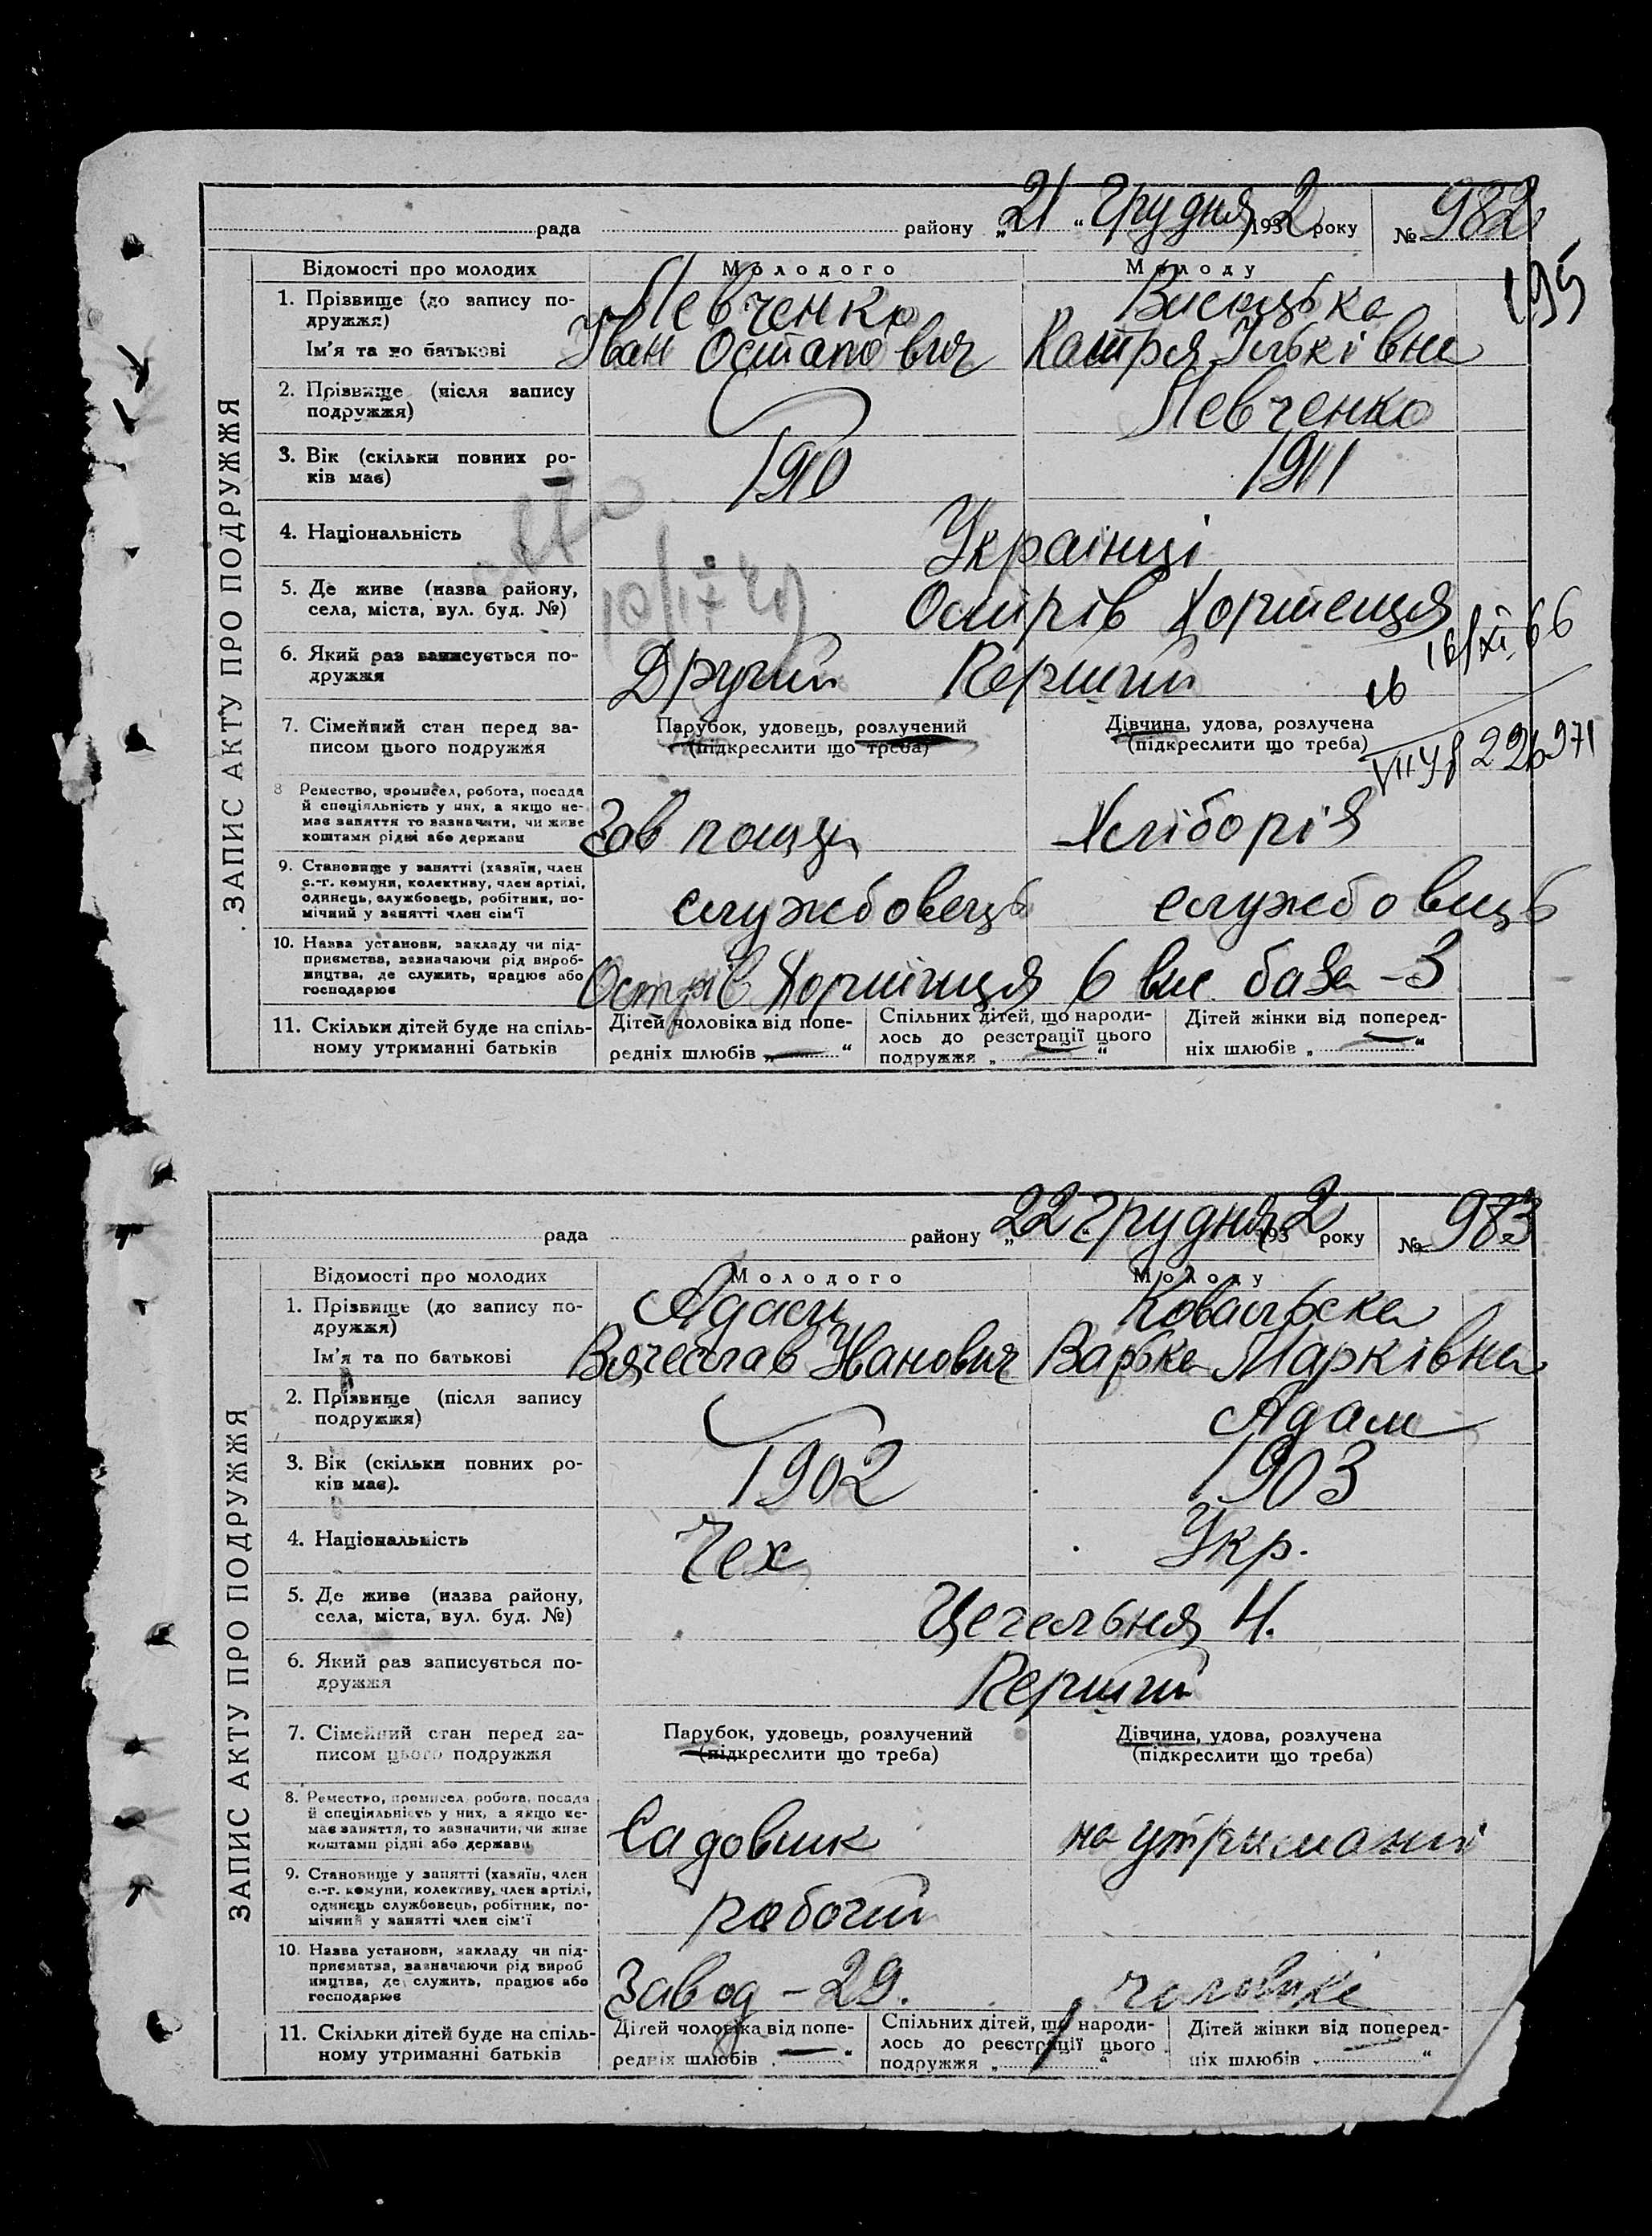 ЗАПИС АКТУ ПРО ПОДРУЖЖЯ
рада району „21“ Грудня 1932 року № 982
195
Відомості про молодих Молодого Молоду
1. Прізвище (до запису по- Левченко Висоцька
дружжя)
Ім'я та по батькові Іван Остапович Катря Ільківна
2. Прізвище (після запису Левченко
подружжя)
3. Вік (скільки повних ро- 1910 1911
ків має)
4. Національність Українці
5. Де живе (назва району, Острів Хортиця
села, міста, вул. буд. №)
16/XI 66
6. Який раз записується по- Другий Перший
дружжя
7. Сімейний стан перед за- Парубок, удовець, розлучений Дівчина, удова, розлучена
писом цього подружжя (підкреслити що треба) (підкреслити що треба)
226971
8 Ремество, промисел, робота, посада
й спеціяльність у них, а якщо не-
має заняття то зазначити, чи живе Зав Хліборіз
коштами рідні або держави
9. Становище у занятті (хазяїн, член
с.-г. комуни, колективу, член артілі,
одинець, службовець, робітник, по- службовець службовиць
мічний у занятті член сім'ї
10. Назва установи, закладу чи під-
приємства, зазначаючи рід вироб-
ництва, де служить, працює або Острів Хортиця 6 база - 3
господарює
11. Скільки дітей буде на спіль- Дітей чоловіка від попе- Спільних дітей, що народи- Дітей жінки від поперед-
ному утриманні батьків редніх шлюбів „—“ лось до реєстрації цього ніх шлюбів „—“
подружжя „—“
ЗАПИС АКТУ ПРО ПОДРУЖЖЯ
рада району „22 Грудня 1932 року № 983
Відомості про молодих Молодого Молоду
1. Прізвище (до запису по- Адам Ковальска
дружжя)
Ім'я та по батькові Вячеслав Іванович Варька Марківна
2. Прізвище (після запису Адам
подружжя)
3. Вік (скільки повних ро- 1902 1903
ків має).
4. Національність Чех Укр.
5. Де живе (назва району, Цегельня 4.
села, міста, вул. буд. №)
6. Який раз записується по- Перший
дружжя
7. Сімейний стан перед за- Парубок, удовець, розлучений Дівчина, удова, розлучена
писом цього подружжя (підкреслити що треба) (підкреслити що треба)
8. Ремество, промисел, робота, посада
й спеціяльність у них, а якщо не-
має заняття, то зазначити, чи живе Садовник на утриманні
коштами рідні або держави
9. Становище у занятті (хазяїн, член
с.-г. комуни, колективу, член артілі,
одинець службовець, робітник, по- рабочий
мічний у занятті член сім'ї
10. Назва установи, закладу чи під-
приємства, зазначаючи рід вироб
ництва, де служить, працює або Завод - 29. чоловікі
господарює
11. Скільки дітей буде на спіль- Дітей чоловіка від попе- Спільних дітей, що народи- Дітей жінки від поперед-
ному утриманні батьків редніх шлюбів „—“ лось до реєстрації цього ніх шлюбів „—“
подружжя „ “